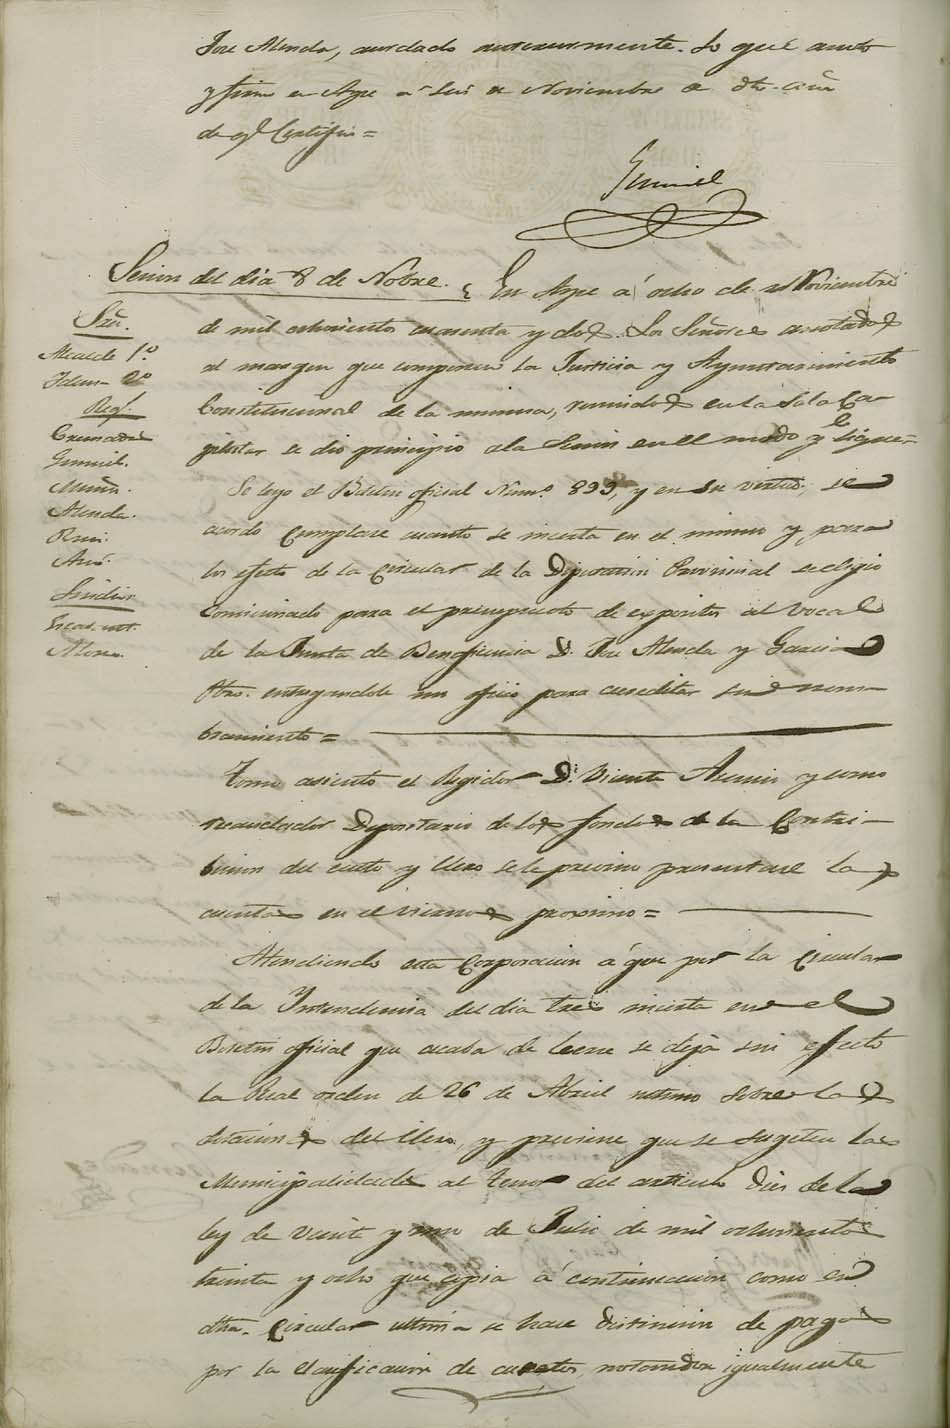 José Alenda, acordado anteriormente. Lo que anoto
y firmo en Aspe a seis de Noviembre de dho. año
de q.e Certifico =
Gumiel
Sesion del dia 8 de Nobre. En Aspe á ocho de Noviembre
de mil ochocientos cuarenta y dos. Los Señores anotados
al margen que componen la Justicia y Ayuntamiento
Constitucional de la misma, reunidos en la Sala Ca-
pitular se dio principio a la Sesion en el modo y.e sigue=
Señ.
Alcalde 1.º
Idem 2.º
Reg.
Cremades
Gumiel.
Muñoz.
Alenda.
Ruiz.
Sindico
Alonso
Se leyo el Boletin oficial Núm.º 899, y en su virtud, se
acordo Cumplase cuanto se inserta en el mismo y para
los efectos de la Circular de la Diputacion Provincial se eligio
Comisionado para el presupuesto de expositos al Vocal
de la Junta de Beneficencia D. José Alenda y Garcia
Pbro. entregandole un oficio para acreditar su nom-
bramiento =
Tomo asiento el Regidor D. Vicente Asensi y como
recaudador Depositario de los fondos de la Contri-
bucion del culto y Clero se le previno presentase las
cuentas en el viernes proximo =
Atendiendo esta Corporacion á que por la Circular
de la Intendencia del dia tres inserta en el
Boletin oficial que acaba de leerse se deja sin efecto
la Real orden de 26 de Abril ultimo sobre las
dotaciones del Clero, y previene que se sugeten las
Municipalidades al tenor del articulo Diez de la
ley de veinte y uno de Julio de mil ochocientos
treinta y ocho que copia á continuacion como en
dha. Circular ultima se hace distincion de pagos
por la clasificacion de cuotas, notandose igualmente